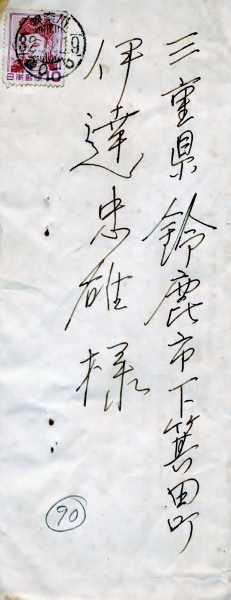 三重県鈴鹿市下箕田町
伊達忠雄様
日本郵便
10
90